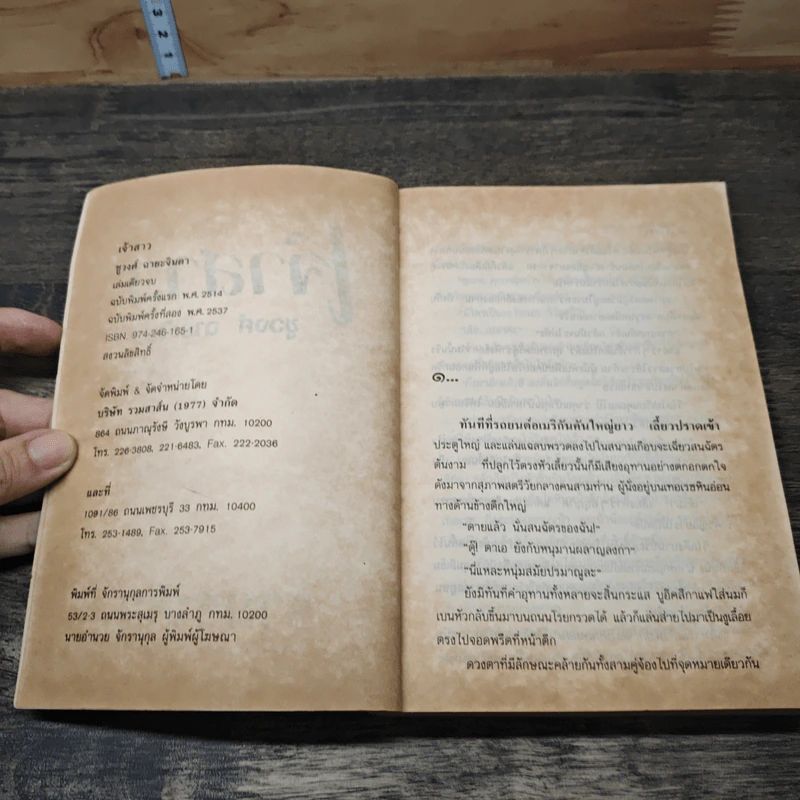 3
2
1
เจ้าสาว
ชูวงศ์ ฉายะจินดา
เล่มเดียวจบ
ฉบับพิมพ์ครั้งแรก พ.ศ. 2514
ฉบับพิมพ์ครั้งที่สอง พ.ศ. 2537
ISBN 974-246-165-1
สงวนลิขสิทธิ์
จัดพิมพ์ & จัดจำหน่ายโดย
บริษัท รวมสาส์น (1977) จำกัด
864 ถนนภาณุรังษี วังบูรพา กทม. 10200
โทร. 226-3808, 221-6483, Fax. 222-2036
และที่
1091/86 ถนนเพชรบุรี 33 กทม. 10400
โทร. 253-1489, Fax. 253-7915
พิมพ์ที่ จักรานุกูลการพิมพ์
53/2-3 ถนนพระสุเมรุ บางลำภู กทม. 10200
นายอำนวย จักรานุกูล ผู้พิมพ์ผู้โฆษณา
๑...
ทันทีที่รถยนต์อเมริกันคันใหญ่ยาว เลี้ยวปราดเข้า
ประตูใหญ่ และแล่นแฉลบพรวดลงไปในสนามเกือบจะเฉี่ยวสนฉัตร
ต้นงาม ที่ปลูกไว้ตรงหัวเลี้ยวนั้นก็มีเสียงอุทานอย่างตกอกตกใจ
ดังมาจากสุภาพสตรีวัยกลางคนสามท่าน ผู้นั่งอยู่บนเทอเรซหินอ่อน
ทางด้านข้างตึกใหญ่
"ตายแล้ว นั่นสนฉัตรของฉัน!"
"ดู๊! ตาเอ ยังกับหนุมานผลาญลงกา"
"นี่แหละหนุ่มสมัยปรมาณูละ"
ยังมิทันที่คำอุทานทั้งหลายจะสิ้นกระแส บูอิคสีกาแฟใส่นมก็
เบนหัวกลับขึ้นมาบนถนนโรยกรวดได้ แล้วก็แล่นส่ายไปมาเป็นงูเลื้อย
ตรงไปจอดพรืดที่หน้าตึก
ดวงตาที่มีลักษณะคล้ายกันทั้งสามคู่จ้องไปที่จุดหมายเดียวกัน